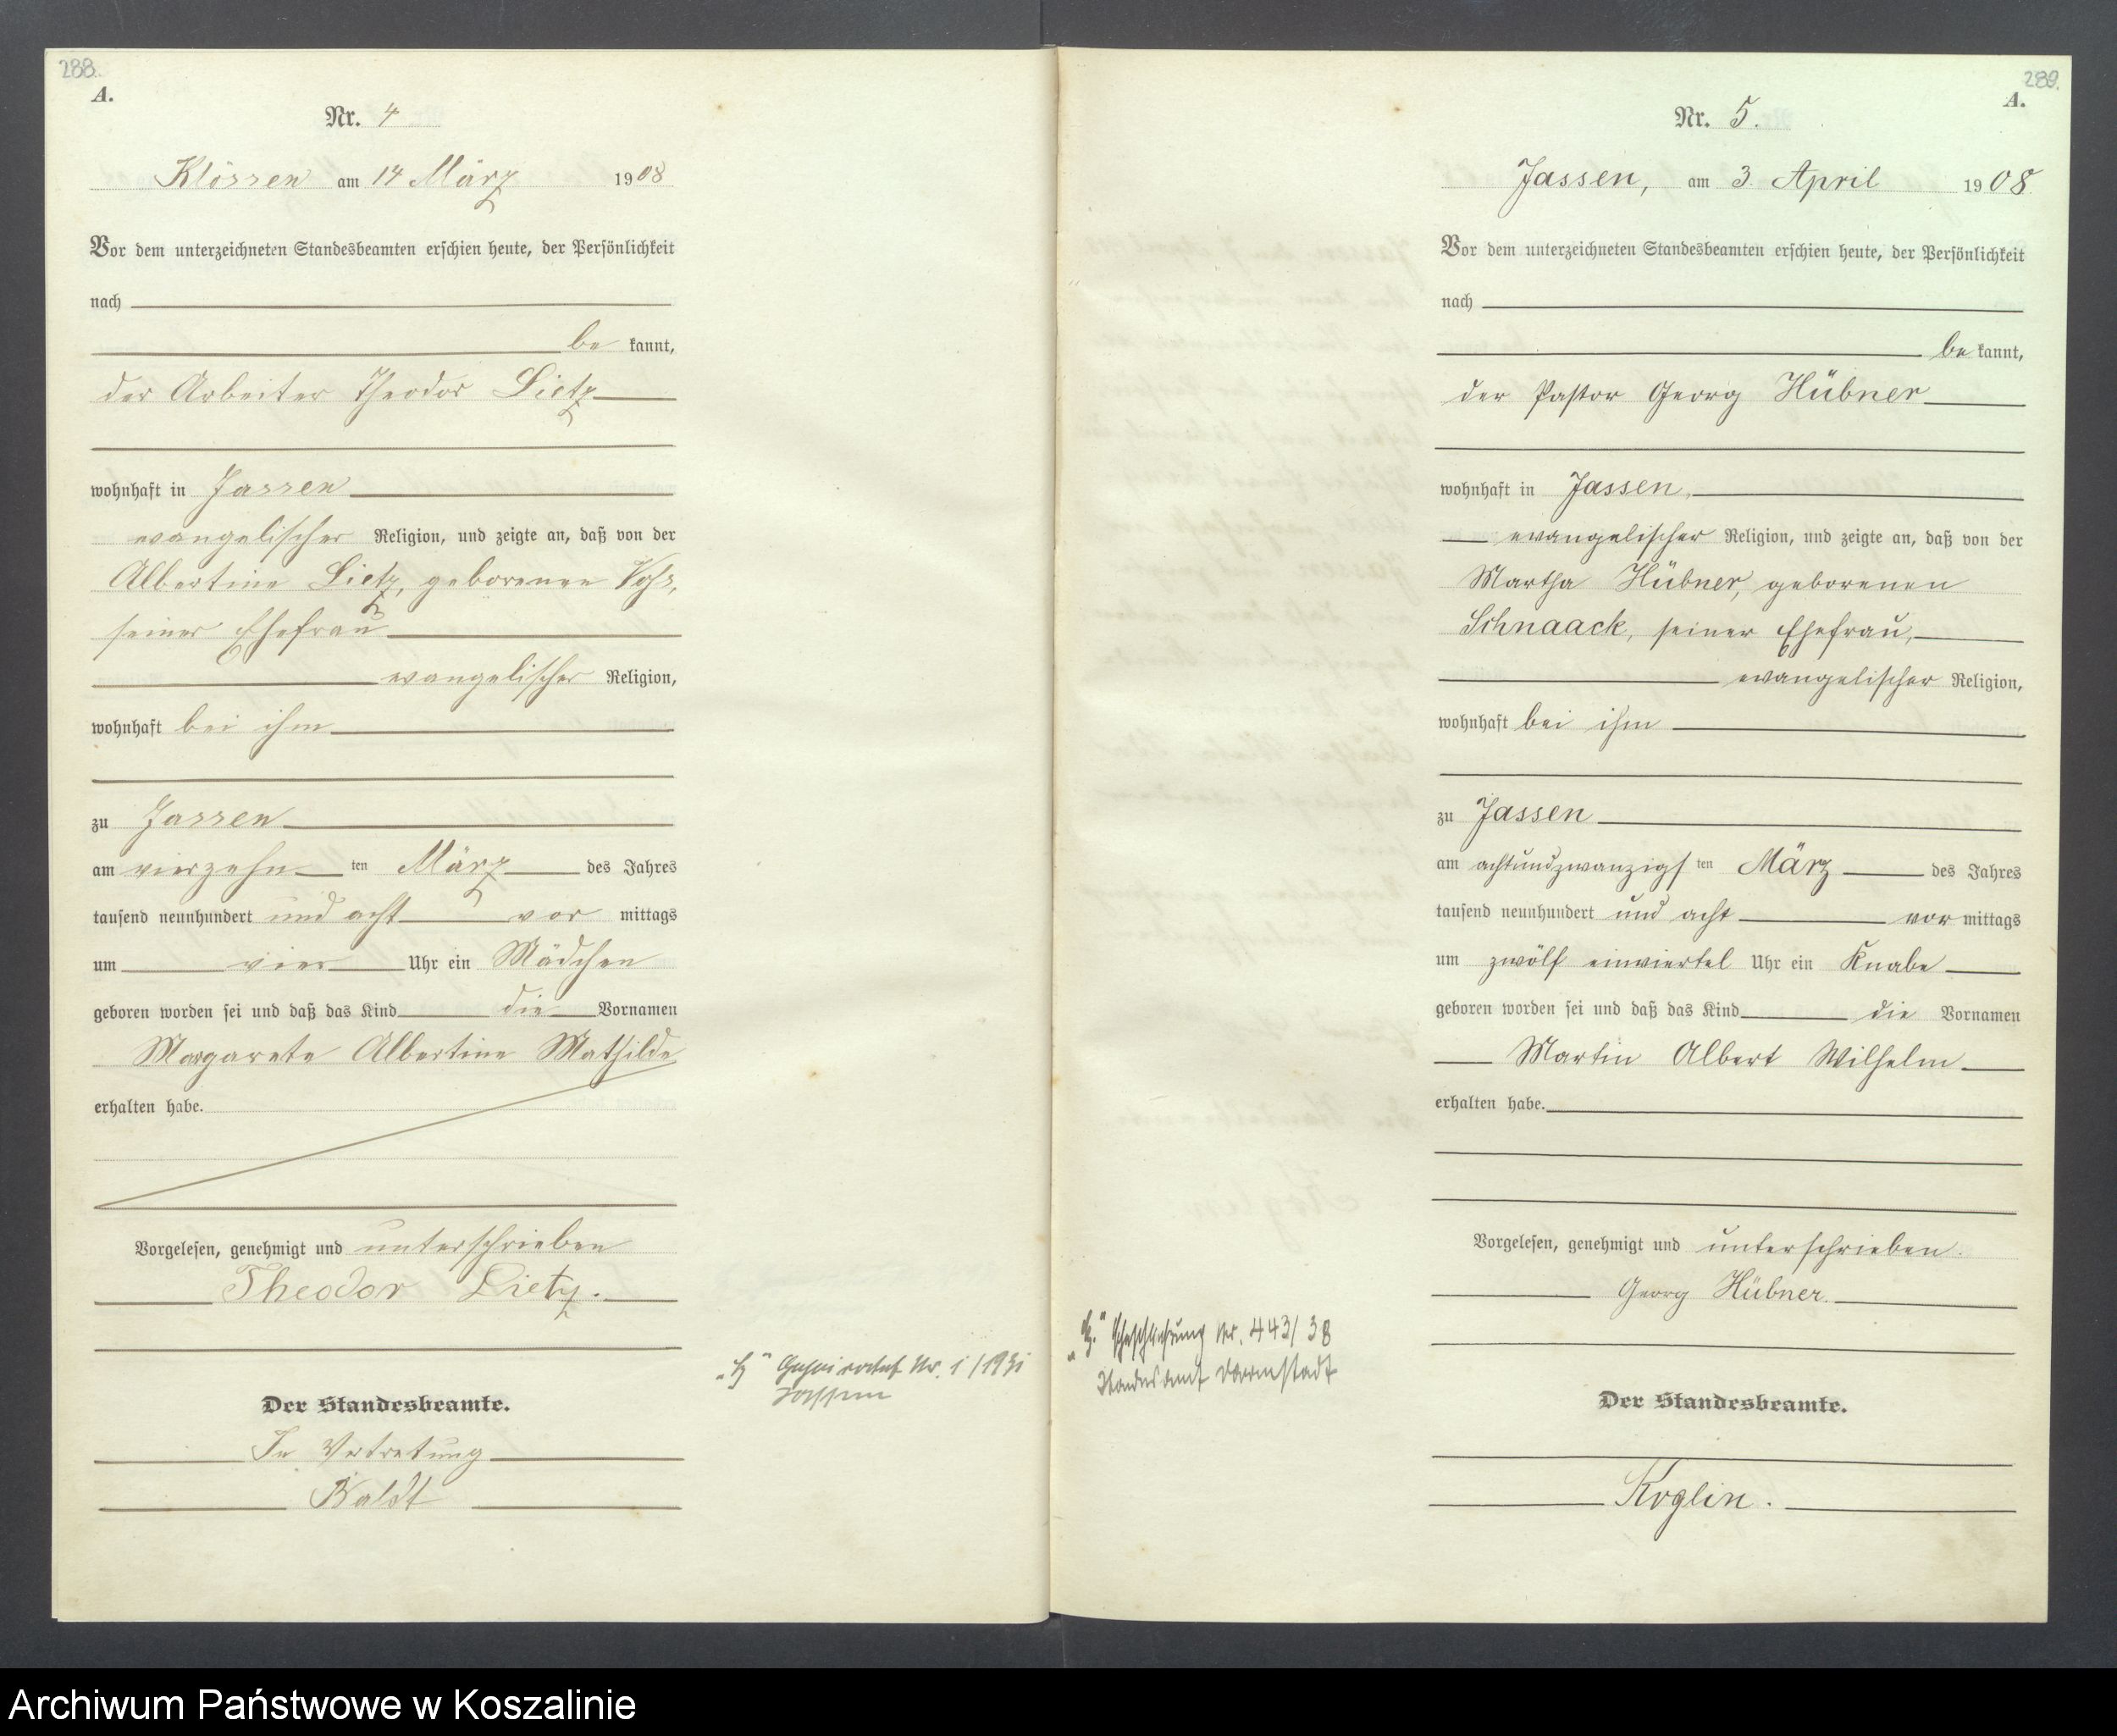 288.
A.
Nr. 4
Klössen am 14 März 1908
Vor dem unterzeichneten Standesbeamten erschien heute, der Persönlichkeit
nach
be kannt,
der Arbeiter Theodor Lietz
wohnhaft in Jassen
evangelischer Religion, und zeigte an, daß von der
Albertine Lietz, geborenen
seiner Ehefrau
evangelischer Religion,
wohnhaft bei ihm
zu Jassen
am vierzehn ten März des Jahres
tausend neunhundert und acht vor mittags
um vier Uhr ein Mädchen
geboren worden sei und daß das Kind die Vornamen
Margarete Albertine Mathilde
erhalten habe.
Vorgelesen, genehmigt und unterschrieben
Theodor Lietz.
Der Standesbeamte.
In Vertretung
Nr. 1/1931
Jassen
289.
A.
Nr. 5.
Jassen, am 3. April 1908
Vor dem unterzeichneten Standesbeamten erschien heute, der Persönlichkeit
nach
be kannt,
der Pastor Georg Hübner
wohnhaft in Jassen,
evangelischer Religion, und zeigte an, daß von der
Martha Hübner, geborenen
Schnaack, seiner Ehefrau,
evangelischer Religion,
wohnhaft bei ihm
zu Jassen
am achtundzwanzigs ten März des Jahres
tausend neunhundert und acht vor mittags
um zwölf einviertel Uhr ein Knabe
geboren worden sei und daß das Kind die Vornamen
Martin Albert Wilhelm
erhalten habe.
Vorgelesen, genehmigt und unterschrieben.
Georg Hübner.
"H." Eheschließung Nr. 443/38
Standesamt Darmstadt
Der Standesbeamte.
Koglin.
Archiwum Państwowe w Koszalinie